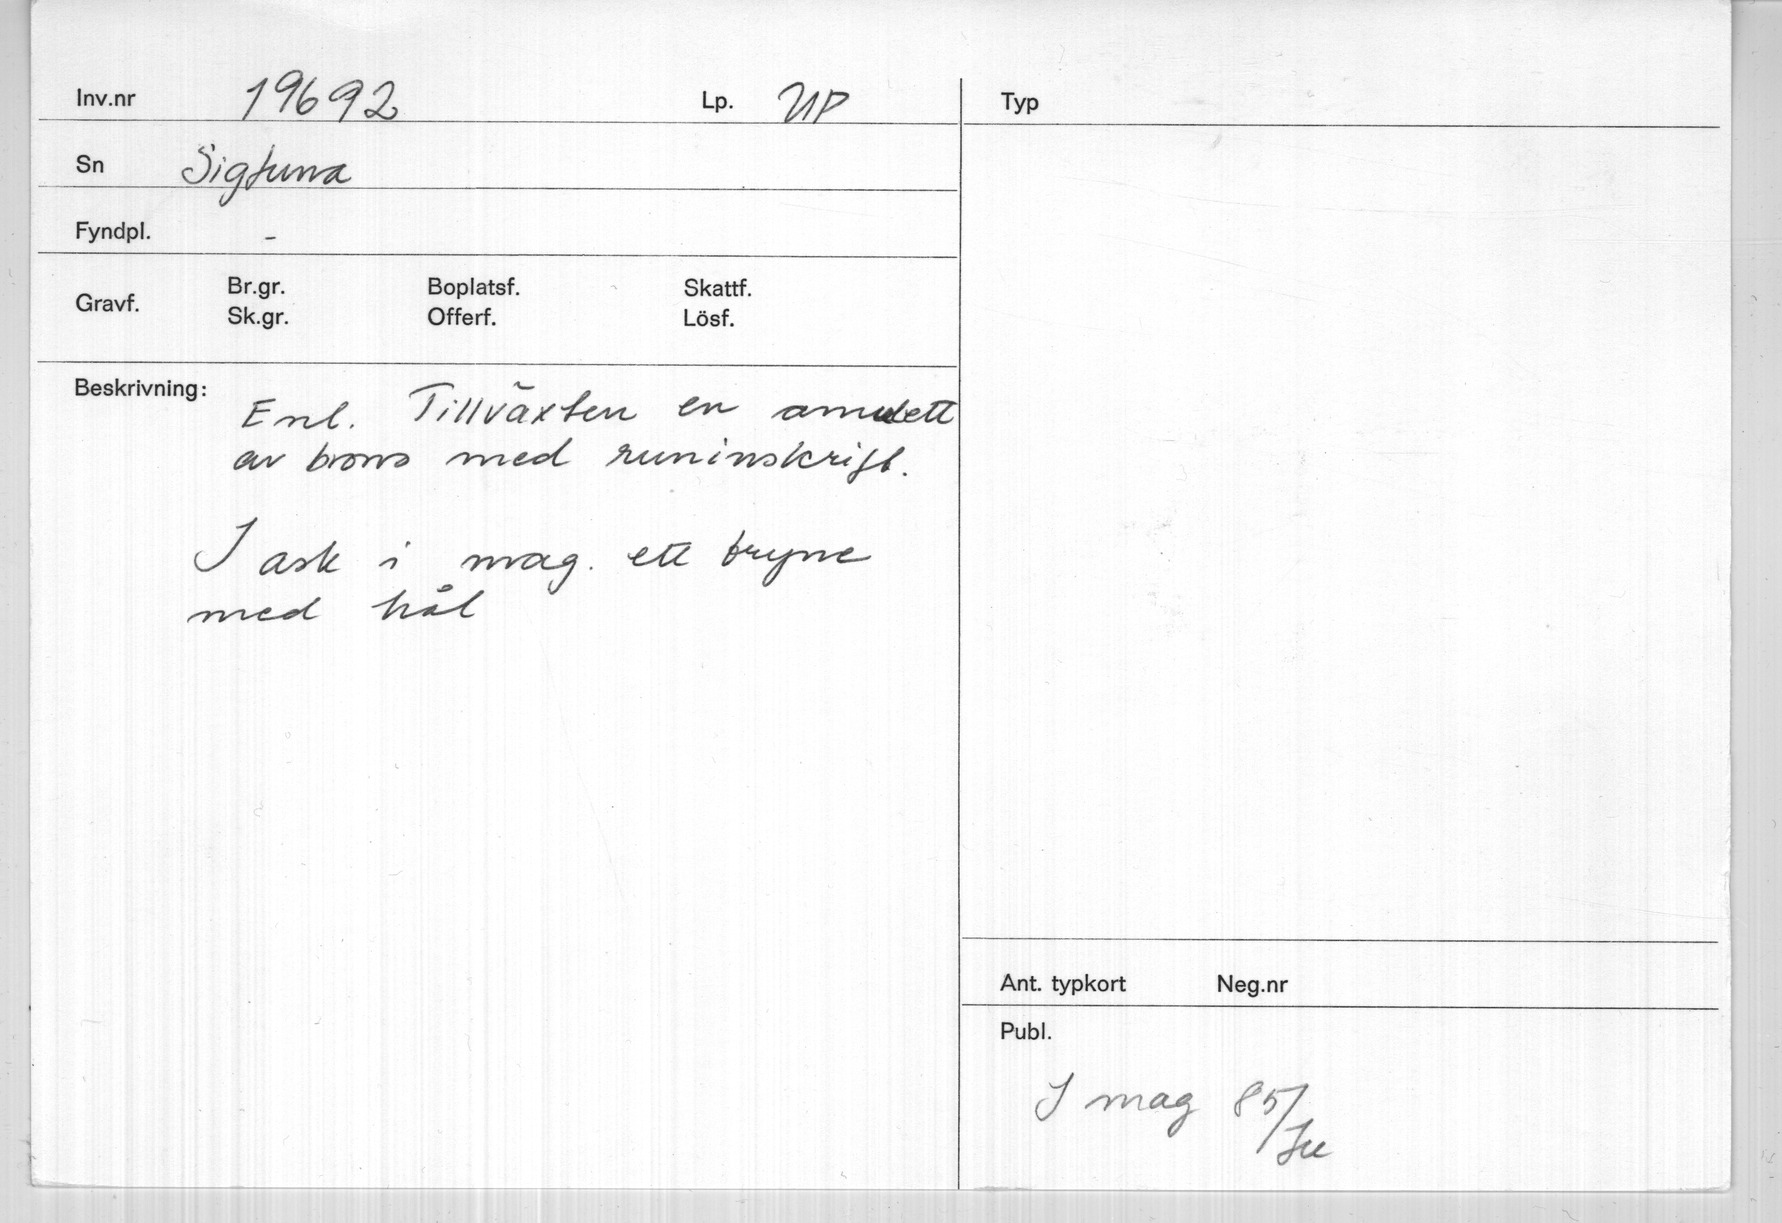 Inv.nr 19692 Lp. UP
Sn Sigtuna
Fyndpl. -
Gravf. Br.gr. Boplatsf. Skattf.
Sk.gr. Offerf. Lösf.
Beskrivning: Enl. Tillväxten en amulett
av brons med runinskrift.
I ask i mag. ett bryne
med hål
Typ
Ant. typkort Neg.nr
Publ.
I mag 85/